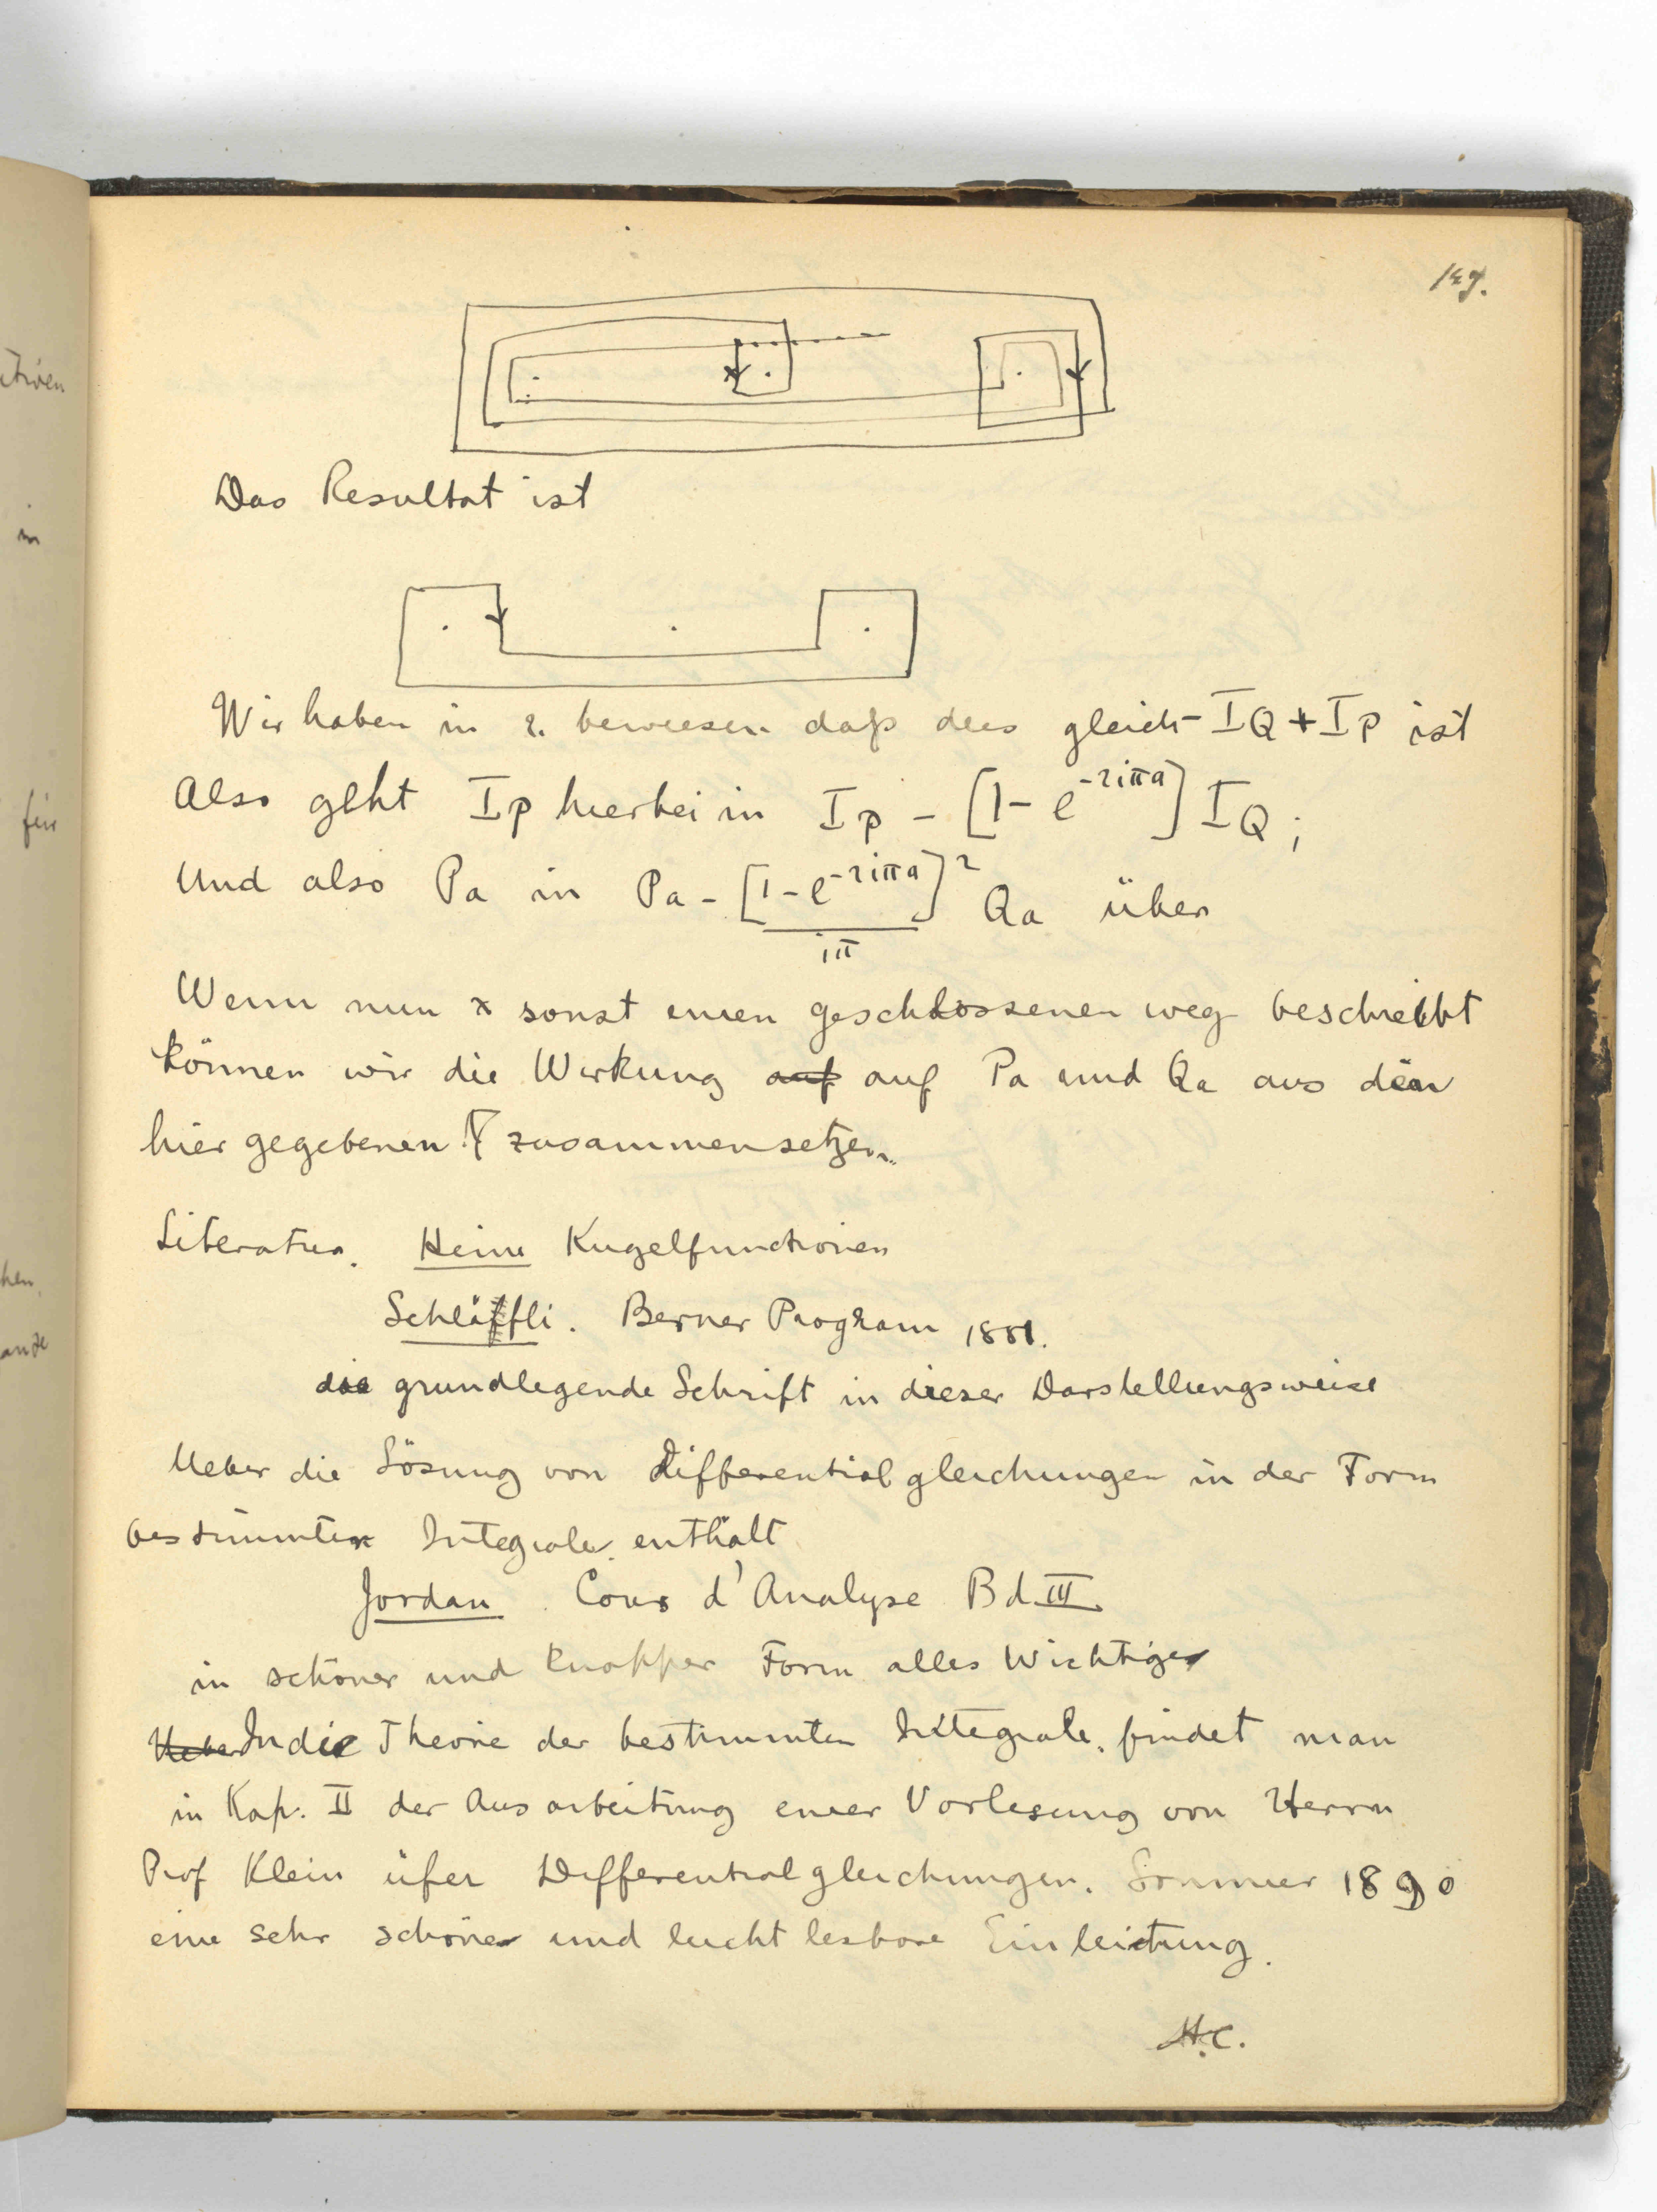 149.
Das Resultat ist
Wir haben in 2. bewiesen daß dies gleich - I_Q + I_P ist
Also geht I_P hierbei in I_P - [1 - e^{-2iπa}] I_Q ;
Und also Pa in Pa - [1 - e^{-2iπa}]^2 / iπ Qa über
Wenn nun x sonst einen geschlossenen weg beschreibt
können wir die Wirkung auf auf Pa und Qa aus den
hier gegebenen zusammensetzen.
Literatur. Heine Kugelfunctionen
Schläffli. Berner Program 1881.
die grundlegende Schrift in dieser Darstellungsweise
Ueber die Lösung von Differentialgleichungen in der Form
bestimmter Integrale enthält
Jordan. Cours d'Analyse Bd. III
in schöner und knapper Form alles Wichtige
Ueber In die Theorie der bestimmten Integrale, findet man
in Kap. II der Ausarbeitung einer Vorlesung von Herrn
Prof Klein üfer Differentialgleichungen. Sommer 1890
eine sehr schöne und leicht lesbare Einleitung.
H.C.
für
in